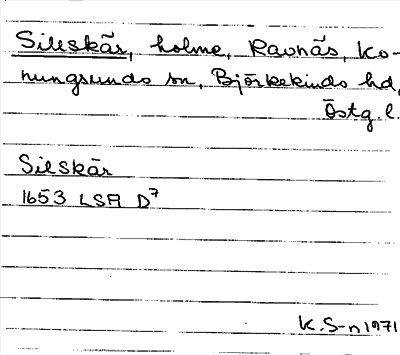 Silskär, holme, Ravnäs, Ko-
nungsunds sn, Björkekinds hd,
Östg. l.
Silskär
1653 LSA D7
K. S-n 1971